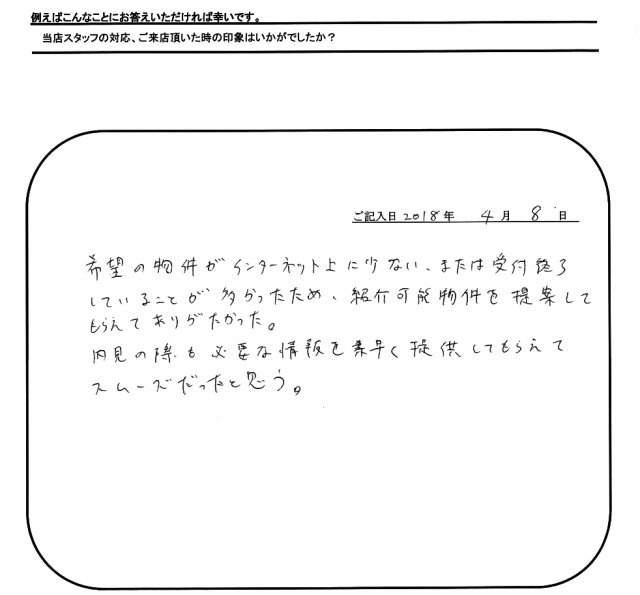 例えばこんなことにお答えいただければ幸いです。
当店スタッフの対応、ご来店頂いた時の印象はいかがでしたか？
ご記入日 2018 年 4 月 8 日
希望の物件がインターネット上に少ない、または受付終了
していることが多かったため、紹介可能物件を提案して
もらえてありがたかった。
内見の際も必要な情報を素早く提供してもらえて
スムーズだったと思う。